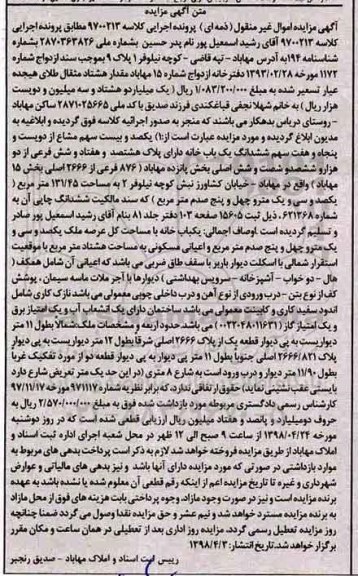 متن آگهی مزایده
آگهی مزایده اموال غیر منقول (ذمه ای) پرونده اجرایی کلاسه ۹۷۰۰۲۱۳ مطابق پرونده اجرایی
کلاسه ۹۷۰۰۲۱۳ آقای رشید اسمعیل پور نام پدر حسین بشماره ملی ۲۸۷۰۳۶۳۸۲۶ بشماره
شناسنامه ۱۹۴ به آدرس مهاباد - تپه قاضی - کوچه نیلوفر ۱ پلاک ۹ بموجب سند ازدواج شماره
۱۱۷۲ مورخه ۱۳۹۳/۰۲/۲۸ دفترخانه ازدواج شماره ۱۵ مهاباد مقدار هشتاد مثقال طلای هیجده
عیار تسعیر شده به مبلغ ۱/۰۸۳/۲۰۰/۰۰۰ ریال (یک میلیارد و هشتاد و سه میلیون و دویست
هزار ریال) به خانم شهلا نجفی قباغکندی فرزند صدیق با کد ملی ۲۸۷۱۰۲۵۶۶۵ ساکن مهاباد
- روستای دریاس بدهکار می باشند که منجر به صدور اجرائیه کلاسه فوق گردیده و ابلاغیه به
مدیون ابلاغ گردیده و مورد مزایده عبارت است از:۱) یکصد و بیست سهم مشاع از دویست و
پنجاه و هفت سهم ششدانگ یک باب خانه دارای پلاک هشتصد و هفتاد و شش فرعی از دو
هزار و ششصد و شصت و شش اصلی بخش پانزده مهاباد (۸۷۶ فرعی از ۲۶۶۶ اصلی بخش ۱۵
مهاباد) واقع در مهاباد - خیابان کشاورز نبش کوچه نیلوفر ۲ به مساحت ۱۳۱/۴۵ متر مربع (
یکصد و سی و یک متر و چهل و پنج صدم متر مربع) که سند مالکیت ششدانگ چاپی آن به
شماره ۶۲۱۲۶۸، ذیل ثبت ۱۵۶۰۵ صفحه ۱۰۳ دفتر جلد ۸۱ بنام آقای رشید اسمعیل پور صادر
و تسلیم گردیده است. اوصاف اجمالی: یکباب خانه با مساحت کل عرصه ملک یکصد و سی و
یک متر و چهل و پنج صدم متر مربع و اعیانی مسکونی به مساحت هشتاد متر مربع با موقعیت
استقرار شمالی با اسکلت دیوار باربر با سقف طاق ضربی می باشد که اعیانی آن شامل همکف (
هال - دو خواب - آشپزخانه - سرویس بهداشتی) دیوارها با آجر ملات ماسه سیمان، پوشش
کف از نوع بتن - درب ورودی از نوع آهن و درب داخلی چوبی معمولی می باشد نازک کاری شامل
اندود سفید کاری و کابینت معمولی می باشد. ساختمان دارای یک انشعاب آب و یک امتیاز برق
و یک امتیاز گاز (۰۰۲۲۰۴۸۰۱۱۶۳۱) می باشد حدود اربعه و مشخصات ملک: شمالاً بطول ۱۱ متر
دیواریست به پی دیوار قطعه یک از پلاک ۲۶۶۶ اصلی شرقاً بطول ۱۲ متر دیواریست به پی دیوار
پلاک ۲۶۶۶/۸۲۱ اصلی جنوباً بطول ۱۱ متر پی دیوار به پی دیوار قطعه دو از مورد تفکیک غرباً
بطول ۱۱/۹۰ متر دیوار و درب ورود است به شارع ۸ متری (در این حد یک متر تعریض شارع دارد
بایستی عقب نشینی نماید) حقوق ارتفاقی ندارد، که برابر نظریه شماره ۹۷۱۱۱۷ مورخه ۹۷/۱۱/۱۷
کارشناس رسمی دادگستری مربوطه مورد بازداشت شده فوق به مبلغ ۲/۵۷۰/۰۰۰/۰۰۰ ریال به
حروف دو میلیارد و پانصد و هفتاد میلیون ریال ارزیابی قطعی شده است که در روز دوشنبه
مورخه ۱۳۹۸/۰۴/۲۴ از ساعت ۹ صبح الی ۱۲ ظهر در محل شعبه اجرای اداره ثبت اسناد و
املاک مهاباد از طریق مزایده فروخته خواهد شد لازم به ذکر است پرداخت بدهی های مربوط به
موارد بازداشتی در صورتی که مورد مزایده دارای آنها باشد و نیز بدهی های مالیاتی و عوارض
شهرداری و غیره تا تاریخ مزایده اعم از اینکه رقم قطعی آن معلوم شده یا نشده باشد به عهده
برنده مزایده است و نیز در صورت وجود مازاد، وجوه پرداختی بابت هزینه های فوق از محل مازاد
به برنده مزایده مسترد خواهد شد و نیم عشر و حق مزایده نقدا وصول می گردد ضمنا چنانچه
روز مزایده تعطیل رسمی گردد، مزایده روز اداری بعد از تعطیلی در همان ساعت و مکان مقرر
برگزار خواهد شد.تاریخ انتشار: ۱۳۹۸/۴/۳
رییس ثبت اسناد و املاک مهاباد - صدیق رنجبر